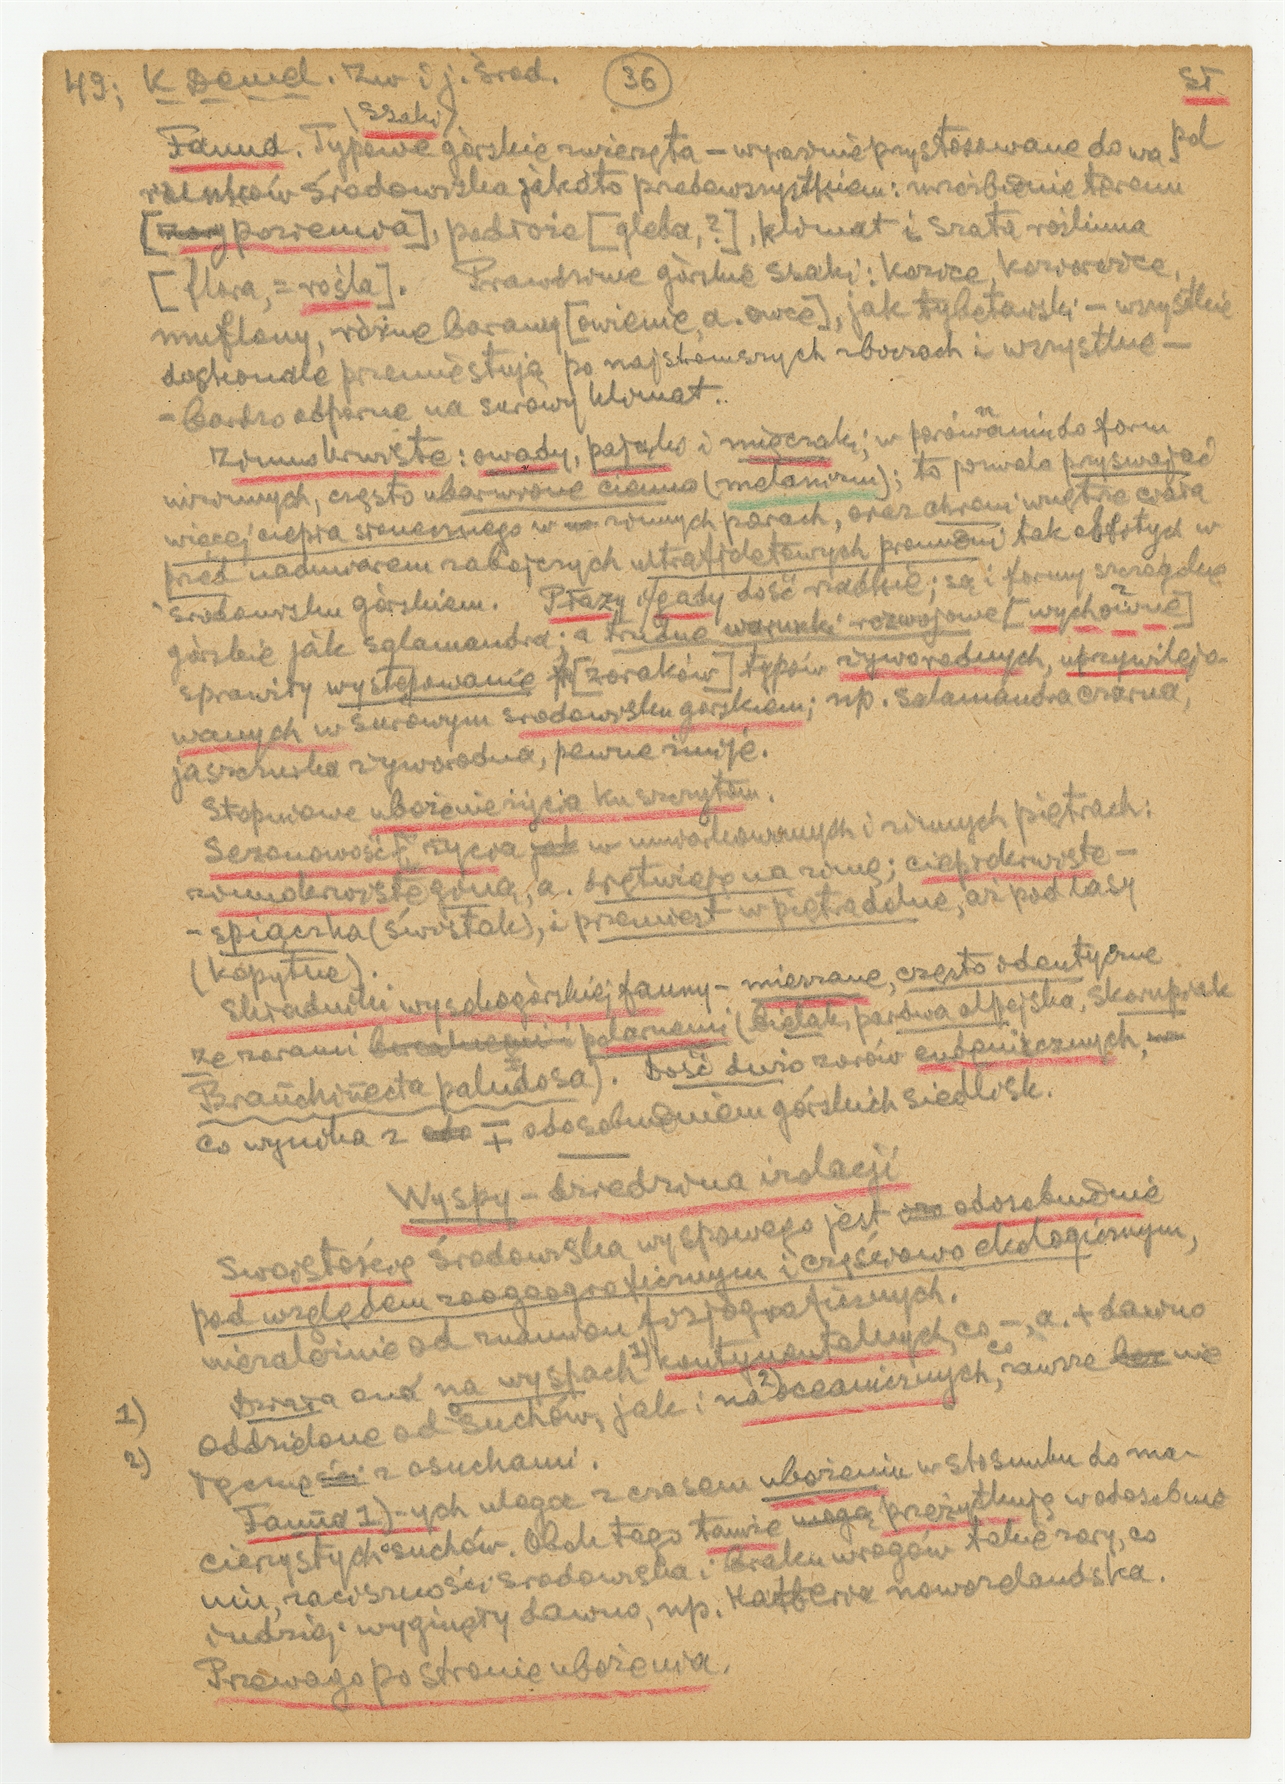 49; K Demel. Zw i j. środ. 36 ST.
(Szaki)
Fauna. Typowe górskie zwierzęta – wyraźnie przystosowane do wa pol
runków środowiska jakoto przedewszystkiem: urzeźbienie terenu
[poziemia], podłoże [gleba, ?], klimat i szata roślinna
[flora, = rośla]. Prawdziwie górskie szaki: kozice, koziorożce,
muflony, różne barany [owienie, a. owce], jak tybetański – wszystkie
doskonale przemiestują po najstromszych zboczach i wszystkie –
– bardzo odporne na surowy klimat..
Zimnokrwiste: owady, pająki i mięczaki; w porównaniu do form
nizinnych, często ubarwione ciemno (melanizm); to pozwala przyswajać
więcej ciepła słonecznego w zimnych porach, oraz chroni wnętrze ciała
przed nadmiarem zabójczych ultrafjoletowych promieni tak obfitych w
środowisku górskiem. Płazy i gady dość rzadkie; są i formy szczególnie
górskie jak salamandra; a trudne warunki rozwojowe [wychowne]
sprawiły występowanie [zoraków] typów żyworodnych, uprzywilejo-
wanych w surowym środowisku górskiem; np. salamandra czarna,
jaszczurka żyworodna, pewne żmije.
Stopniowe ubożenie życia ku szczytom.
Sezonowość życia w umiarkowanych i zimnych piętrach:
zimnokrwiste giną, a. drętwieję na zimę; ciepłokrwiste –
– spiączka (świstak), i przemiest w piętra dolne, aż pod lasy
(kopytne).
Składniki wysokogórskiej fauny – mieszane, często identyczne
ze zorami polarnemi (bielak, pardwa alpejska, skorupiak
Branchinecta paludosa). Dość dużo zorów endemicznych,
co wynika z ± odosobnieniem górskich siedlisk.
Wyspy – dziedzina izolacji
Swoistością środowiska wyspowego jest odosobnienie
pod względem zoogeograficznym i częściowo ekologicznym,
niezależnie od znamion fizjograficznych.
Działa ona na wyspach 1) kontynentalnych, co –, a. + dawno
1) oddzielone od osuchów, jak i na 2) oceanicznych, co zawsze nie
2) łączne z osuchami.
Fauna 1)-ych ulega z czasem ubożeniu w stosunku do ma-
cierzystych osuchów. Obok tego tamże przeżytkują w odosobnie
niu, zaciszności środowiska i braku wrogów takie zory, co
indziej wyginęły dawno, np. Hatteria nowozelandska.
Przewaga po stronie ubożenia.